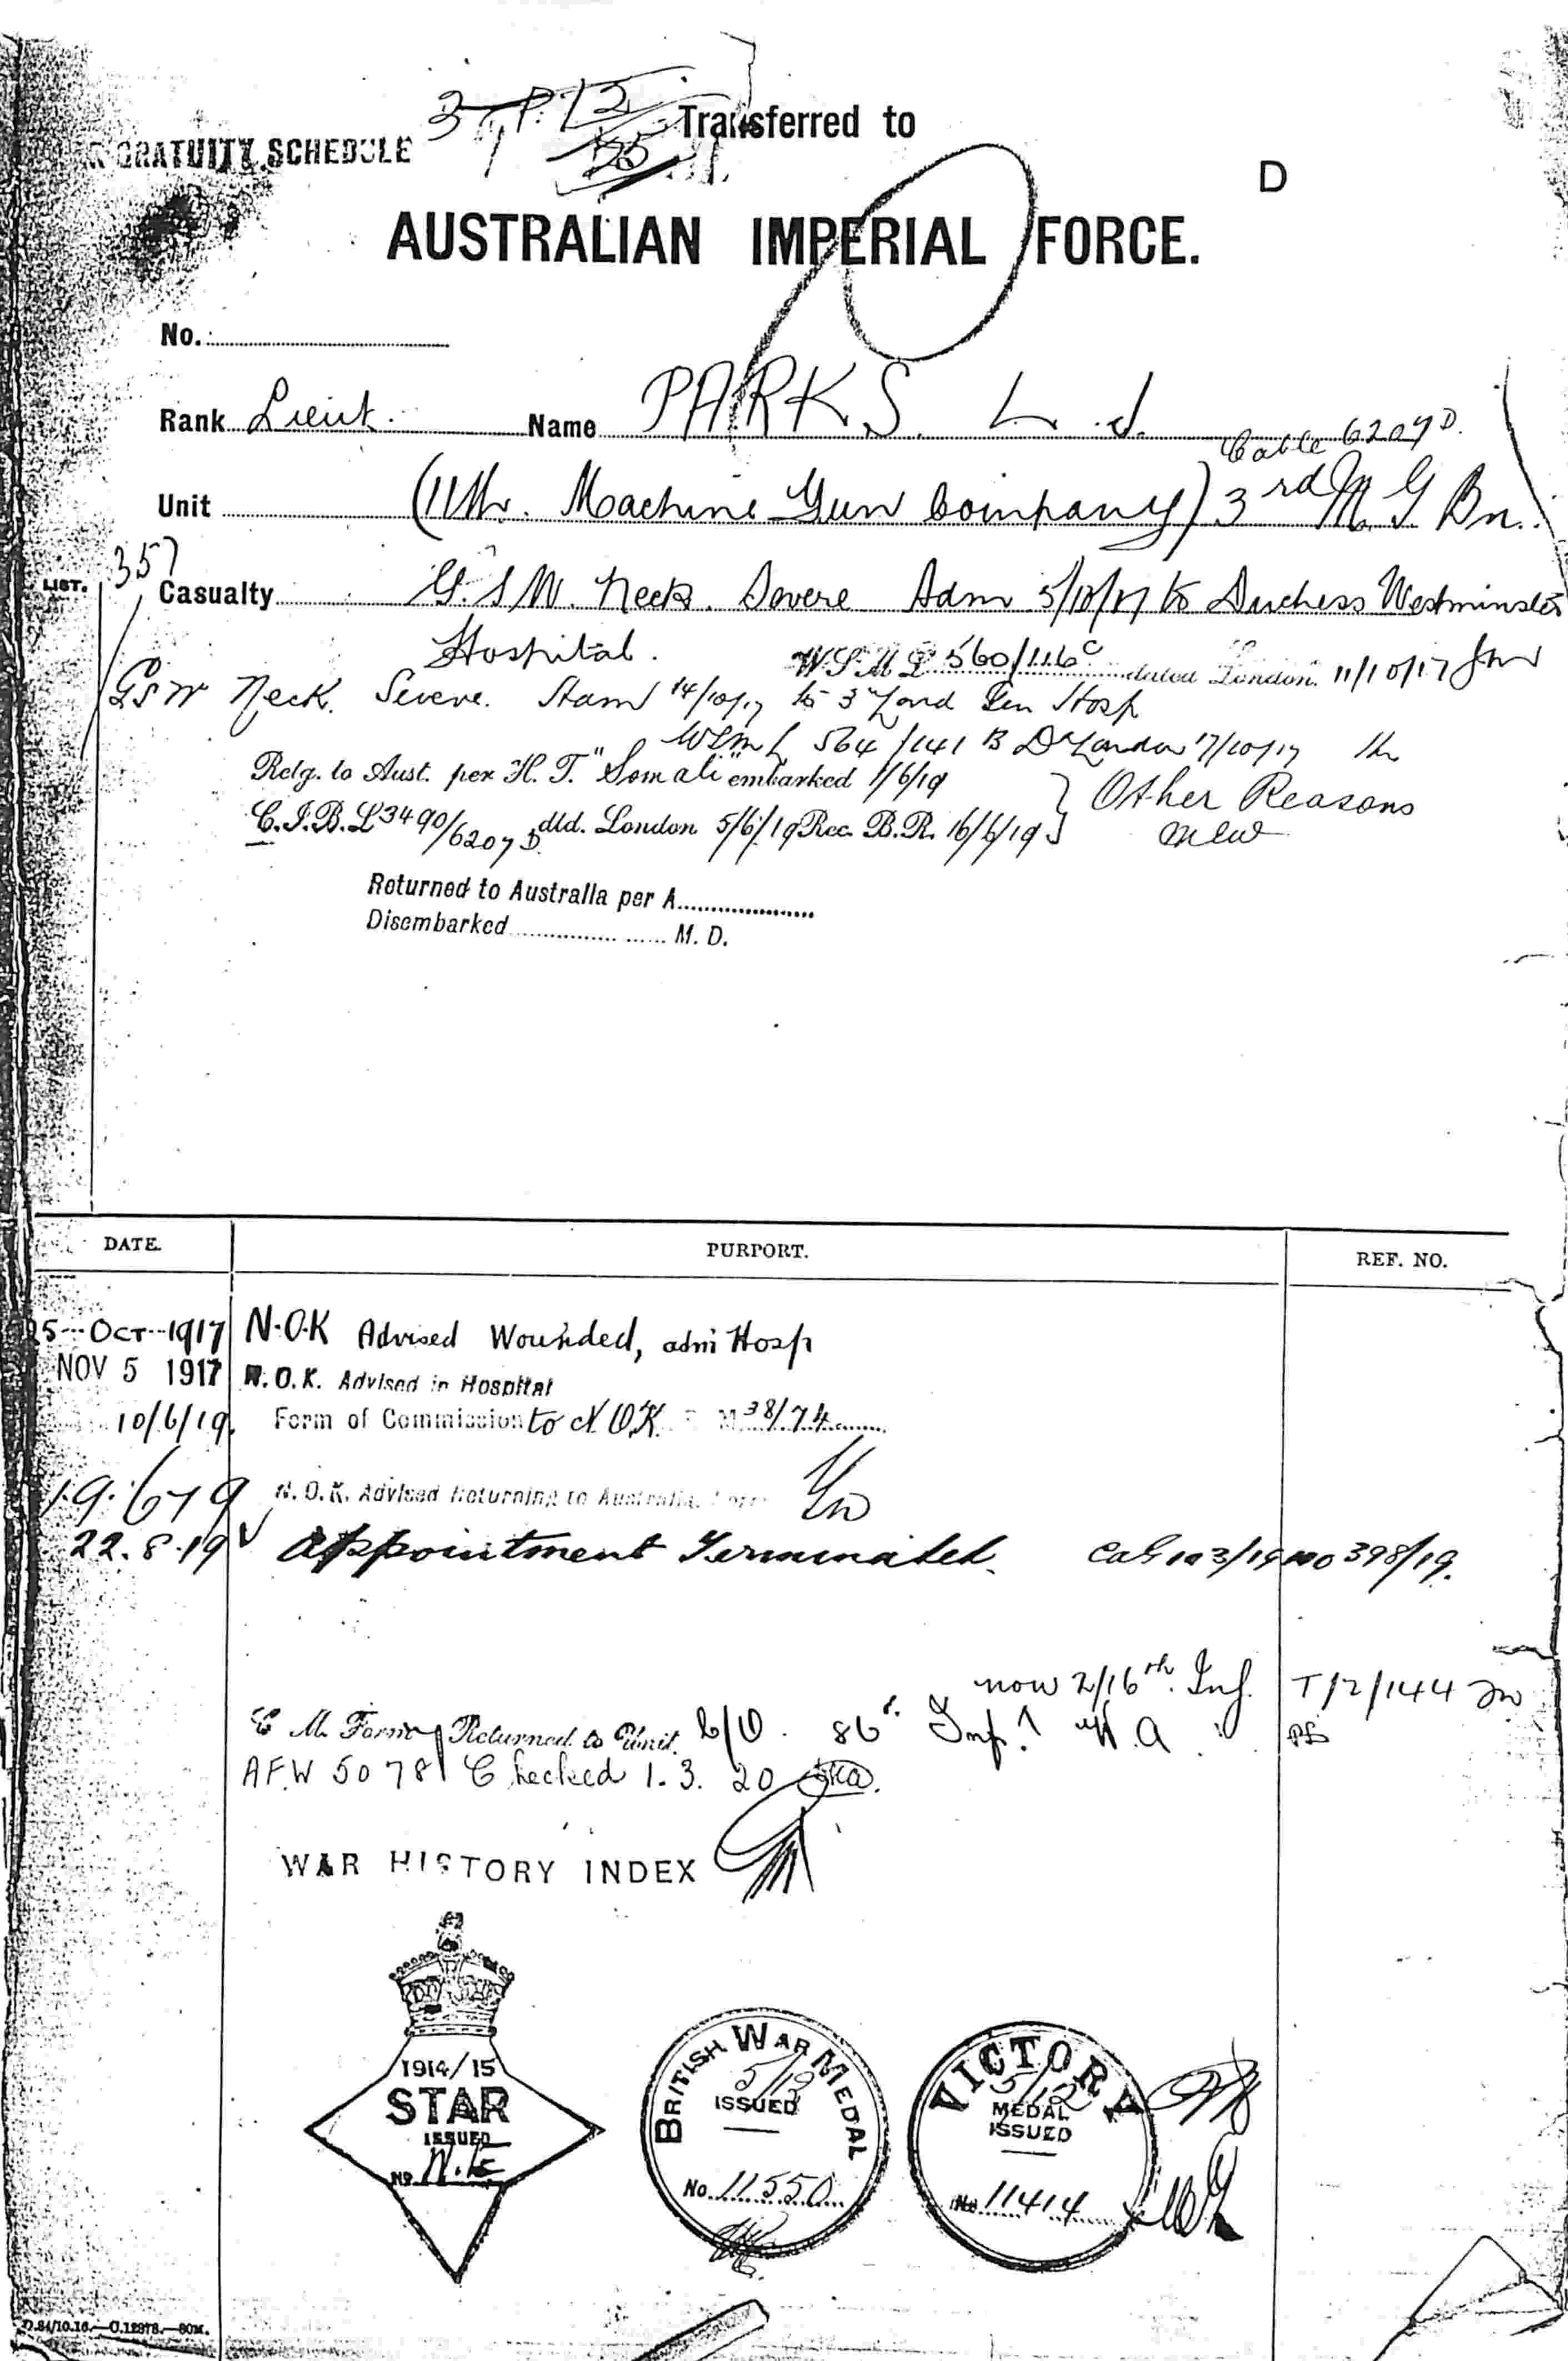 GRATUITY SCHEDULE
Transferred to
D
AUSTRALIAN IMPERIAL FORCE.
No.
Rank Lieut. Name PARKS. L. J.
Cable 6207D.
Unit (11th. Machine Gun Company) 3rd M. G. Bn.
LIST. 357
Casualty G.S.W. Neck. Severe Adm 5/10/17 to Duchess Westminster
Hospital. W.S.M.L 560/116c dated London. 11/10/17
GSW Neck. Severe. Adm 14/10/17 to 3rd Lond Gen Hosp
WSML 564/141 B D London 17/10/17
Retg. to Aust. per H. T. "Somali" embarked 1/6/19
C.I.B.L 3490/6207D. dtd. London 5/6/19 Rec. B.R. 16/6/19 } Other Reasons
Returned to Australia per A
Disembarked M. D.
DATE. PURPORT. REF. NO.
25 OCT 1917 N.O.K Advised Wounded, adm Hosp
NOV 5 1917 N.O.K. Advised in Hospital
10/6/19. Form of Commission to N.O.K. M 38/74
19.6.19 N.O.K. Advised Returning to Australia.
22.8.19 Appointment Terminated. CaG 103/19 MO 398/19.
now 2/16th. Inf. T/2/144
C. M. Form Returned to Unit. 86. Inf. W.A
AFW 5078 Checked 1.3.20
WAR HISTORY INDEX
1914/15
STAR
ISSUED
No N.E
BRITISH WAR MEDAL
5/12
ISSUED
No. 11550
VICTORY
5/12
MEDAL
ISSUED
No 11414
D.84/10.16.—C.12878.—80M.